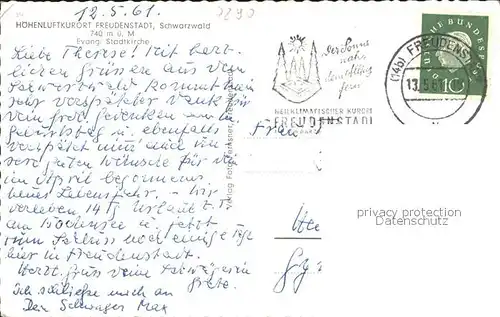 12.5.61.
HÖHENLUFTKURORT FREUDENSTADT, Schwarzwald
740 m ü. M
Evang. Stadtkirche
Liebe Therese! Mit herz-
lichen Grüssen aus dem
Schwarzwald kommt mein
sehr verspäteter Dank für
Dein frdl. Gedenken an m.
Geburtstag u. ebenfalls
verspätet nun auch un-
sere guten Wünsche für Dein
im April begonnenes
neues Lebensjahr. - Wir
verleben 14 Tg Urlaub z. T.
am Bodensee u. jetzt
zum Schluss noch einige Tge
hier in Freudenstadt.
Herzl. Gruss Deine Schwägerin
Grete.
Ich schließe mich an
Dein Schwager Max
Verlag Foto
der Sonne
nah
dem Alltag
fern
HEILKLIMATISCHER KURORT
FREUDENSTADT
(14b) FREUDENST
13.5.61
DEUTSCHE BUNDESPOST
10
Frau
privacy protection
Datenschutz